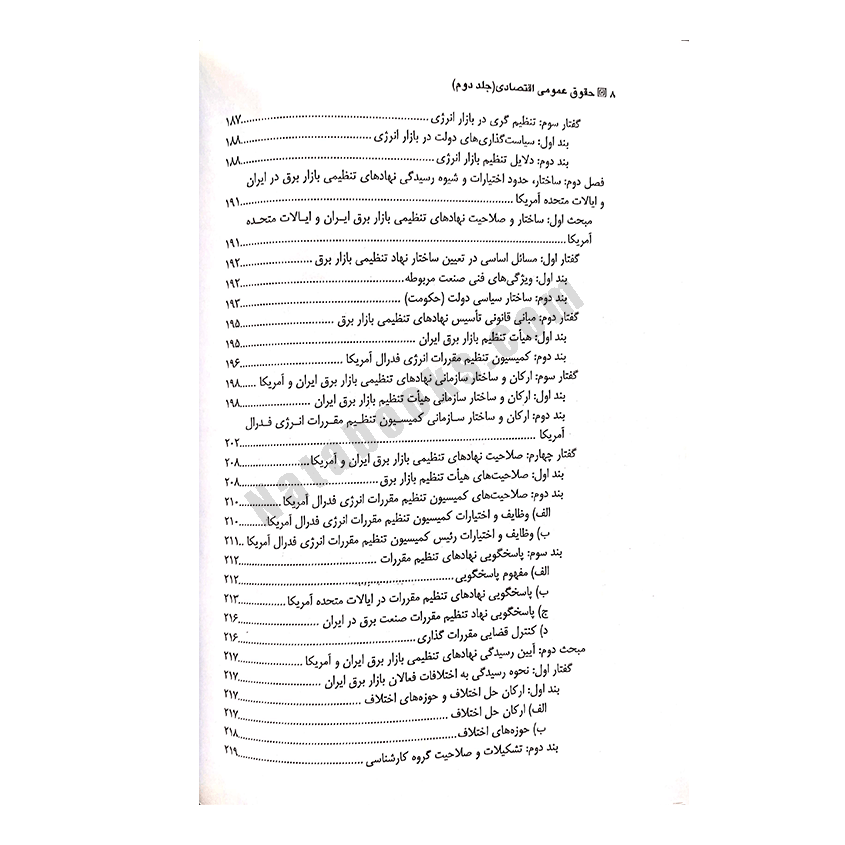 ۸ حقوق عمومی اقتصادی(جلد دوم)
گفتار سوم: تنظیم گری در بازار انرژی ............ ۱۸۷
بند اول: سیاست‌گذاری‌های دولت در بازار انرژی ............ ۱۸۸
بند دوم: دلایل تنظیم بازار انرژی ............ ۱۸۸
فصل دوم: ساختار، حدود اختیارات و شیوه رسیدگی نهادهای تنظیمی بازار برق در ایران
و ایالات متحده آمریکا ............ ۱۹۱
مبحث اول: ساختار و صلاحیت نهادهای تنظیمی بازار برق ایران و ایالات متحده
آمریکا ............ ۱۹۱
گفتار اول: مسائل اساسی در تعیین ساختار نهاد تنظیمی بازار برق ............ ۱۹۲
بند اول: ویژگی‌های فنی صنعت مربوطه ............ ۱۹۲
بند دوم: ساختار سیاسی دولت (حکومت) ............ ۱۹۳
گفتار دوم: مبانی قانونی تأسیس نهادهای تنظیمی بازار برق ............ ۱۹۵
بند اول: هیأت تنظیم بازار برق ایران ............ ۱۹۵
بند دوم: کمیسیون تنظیم مقررات انرژی فدرال آمریکا ............ ۱۹۶
گفتار سوم: ارکان و ساختار سازمانی نهادهای تنظیمی بازار برق ایران و آمریکا ...... ۱۹۸
بند اول: ارکان و ساختار سازمانی هیأت تنظیم بازار برق ایران ............ ۱۹۸
بند دوم: ارکان و ساختار سازمانی کمیسیون تنظیم مقررات انرژی فدرال
آمریکا ............ ۲۰۲
گفتار چهارم: صلاحیت نهادهای تنظیمی بازار برق ایران و آمریکا ............ ۲۰۸
بند اول: صلاحیت‌های هیأت تنظیم بازار برق ............ ۲۰۸
بند دوم: صلاحیت‌های کمیسیون تنظیم مقررات انرژی فدرال آمریکا ............ ۲۱۰
الف) وظایف و اختیارات کمیسیون تنظیم مقررات انرژی فدرال آمریکا .......... ۲۱۰
ب) وظایف و اختیارات رئیس کمیسیون تنظیم مقررات انرژی فدرال آمریکا .. ۲۱۱
بند سوم: پاسخگویی نهادهای تنظیم مقررات ............ ۲۱۲
الف) مفهوم پاسخگویی ............ ۲۱۲
ب) پاسخگویی نهادهای تنظیم مقررات در ایالات متحده آمریکا ............ ۲۱۳
ج) پاسخگویی نهاد تنظیم مقررات صنعت برق در ایران ............ ۲۱۶
د) کنترل قضایی مقررات گذاری ............ ۲۱۶
مبحث دوم: آیین رسیدگی نهادهای تنظیمی بازار برق ایران و آمریکا ............ ۲۱۷
گفتار اول: نحوه رسیدگی به اختلافات فعالان بازار برق ایران ............ ۲۱۷
بند اول: ارکان حل اختلاف و حوزه‌های اختلاف ............ ۲۱۷
الف) ارکان حل اختلاف ............ ۲۱۷
ب) حوزه‌های اختلاف ............ ۲۱۸
بند دوم: تشکیلات و صلاحیت گروه کارشناسی ............ ۲۱۹
Narabooks.com